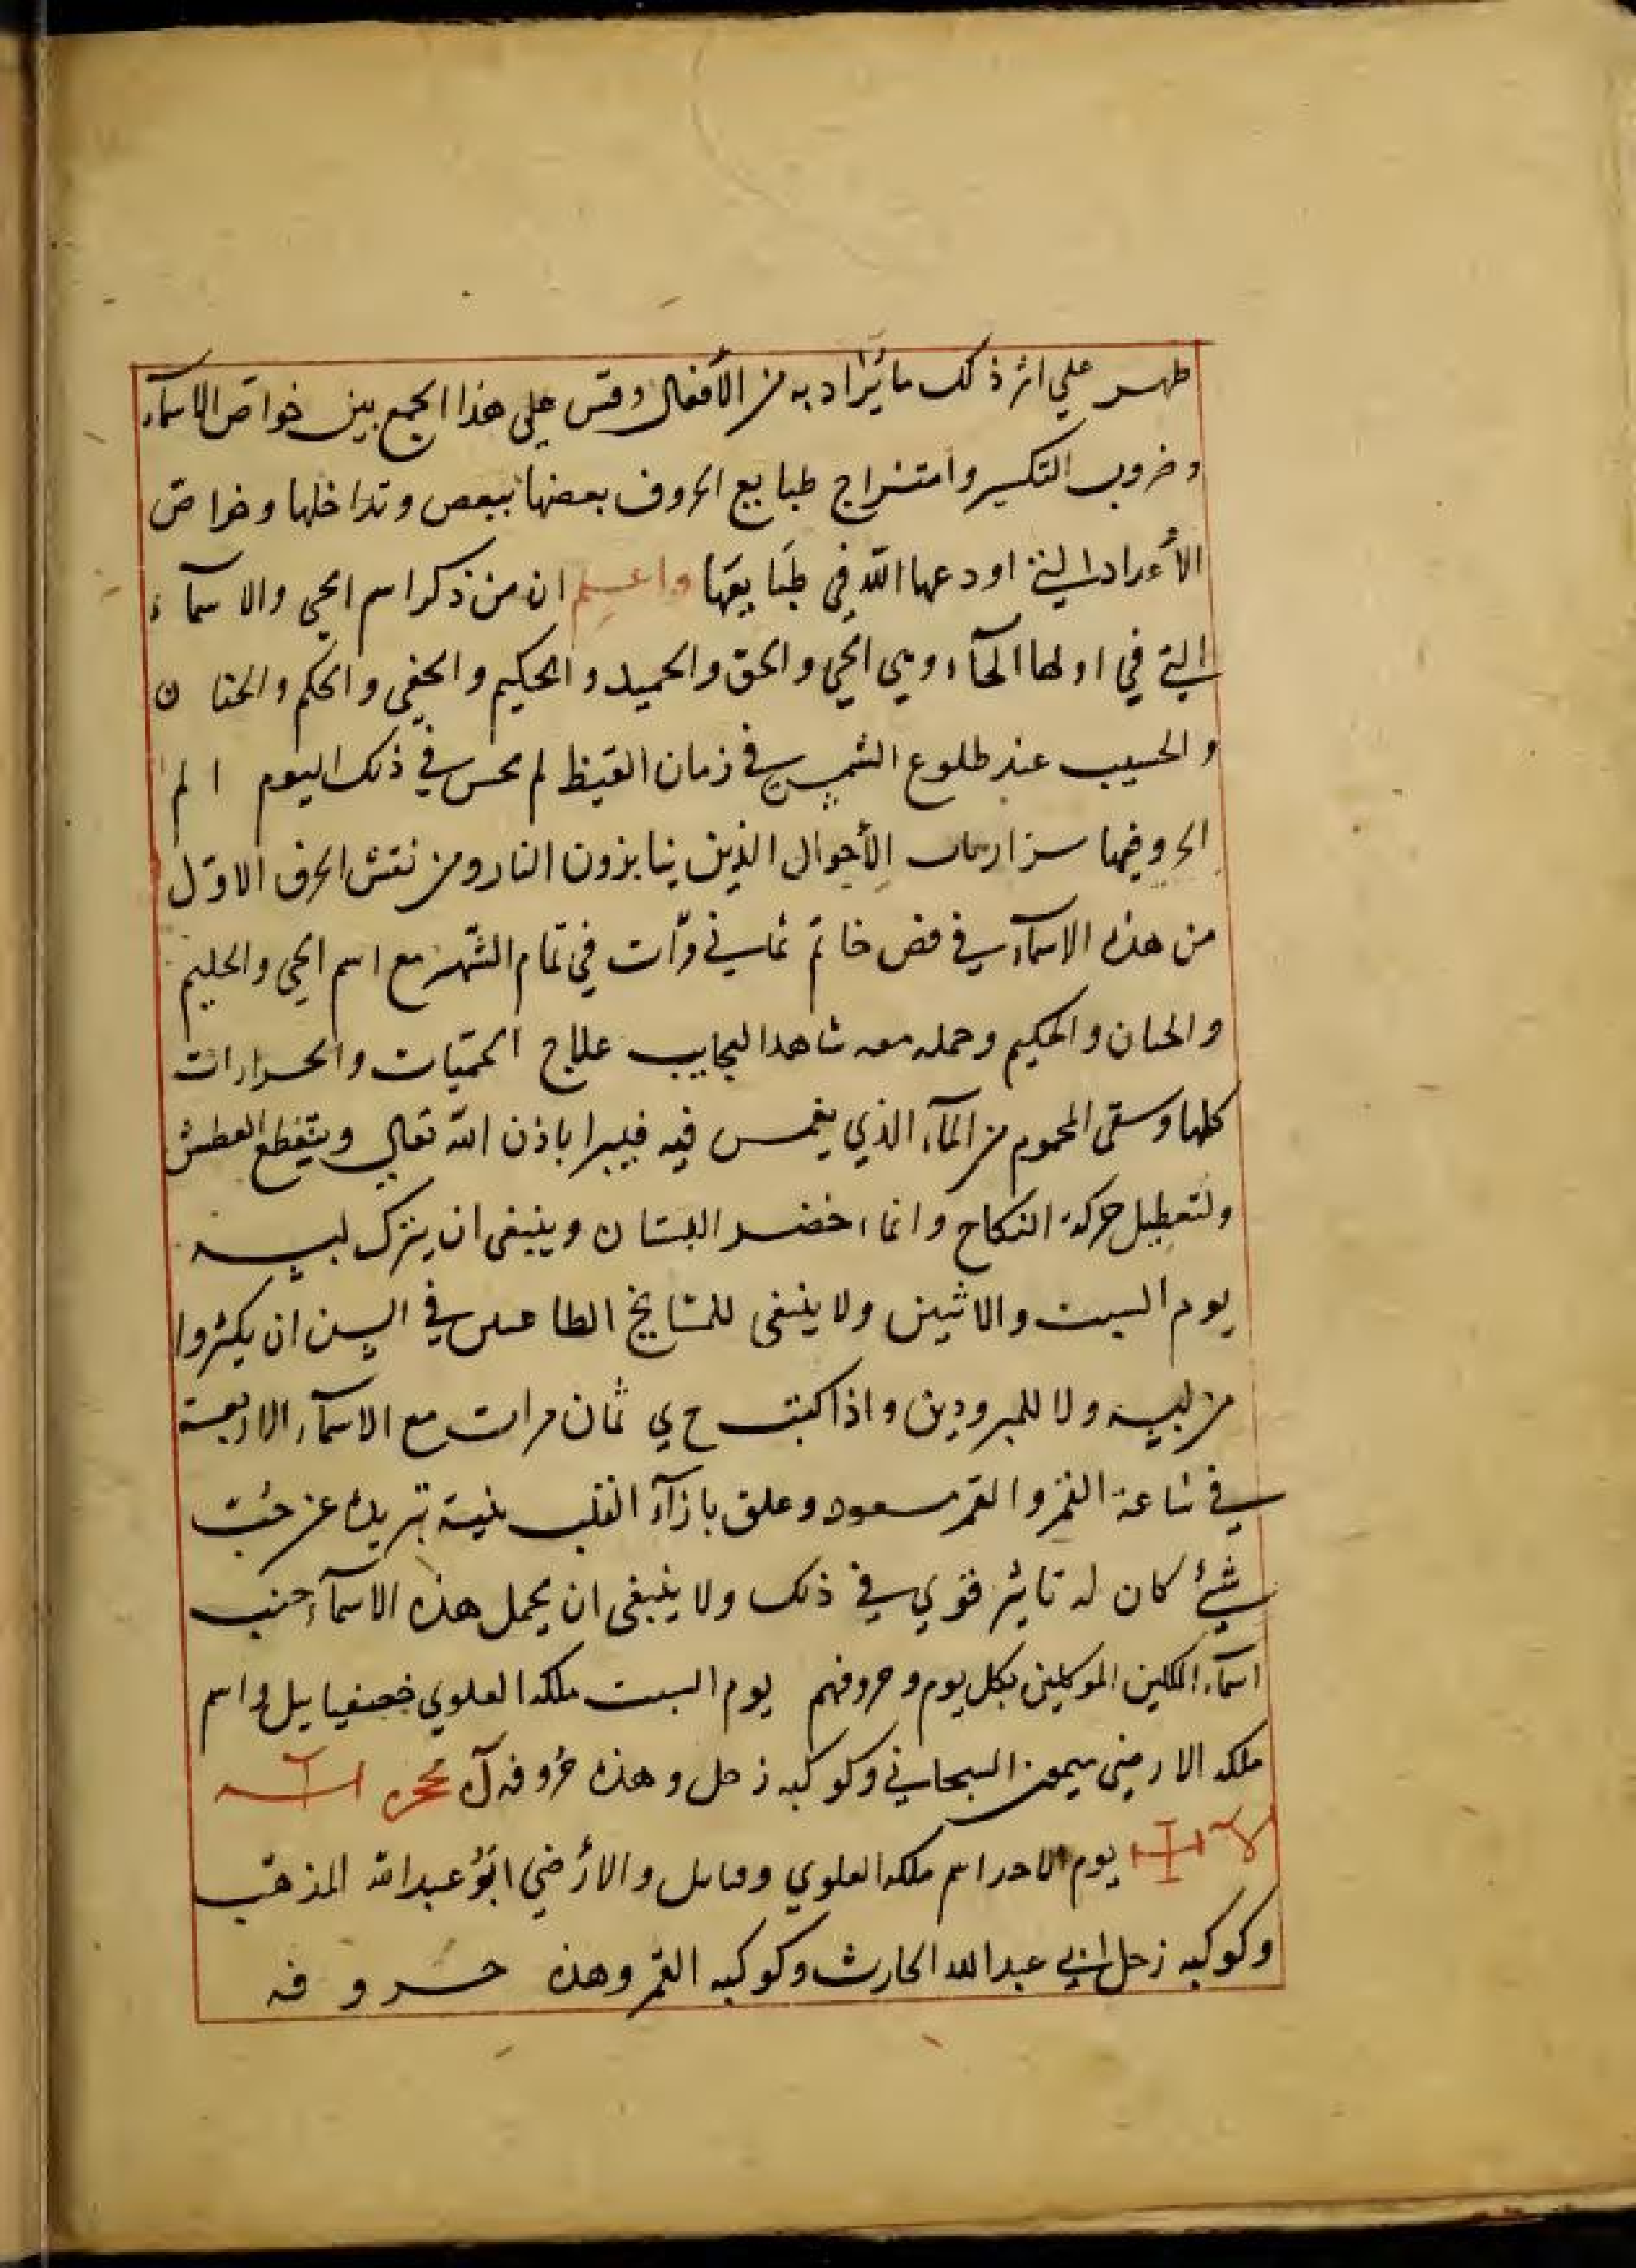 ظهر علي اثر ذلك ما يُراد به من الأفعال وقس على هذا الجمع بين خواص الاسمآء
وضروب التكسير وامتزاج طبايع الحروف بعضها ببعض وتداخلها وخواص
الأعداد التي اودعها اللّه في طبَايعهَا واعلم ان من ذكر اسم الحي والاسمآء
التي في اولها الحآء وهي الحي والحق والحميد والحكيم والحفي والحكم والحنان
والحسيب عند طلوع الشمس في زمان القيظ لم يحس في ذلك اليوم الم
الحر وفيها سر الأحوال الذين النار ومن نقش الحرف الاوّل
من هذه الاسمآء في فص خاتم ثماني مرّات في تمام الشهر مع اسم الحي والحليم
والحنان والحكيم وحمله معه شاهد العجايب علاج الحميّات والحرارات
كلها وسقى المحموم من المآء الذي يغمس فيه فيبرا باذن اللّه تعالي وينقطع العطش
ولتعطيل حركة النكاح وانماء خضر البستان وينبغى ان يترك لبسه
يوم السبت والاثنين ولا ينبغى للمشايخ الطاعنين في السن ان يكثروا
من لبسه ولا للمبرودين واذا كتبت ح ي ثمان مرات مع الاسمآء الاربعة
في ساعة القمر والقمر مسعود وعلق بازآء القلب بنية تبريده عن حُبّ
شيءٍ كان له تاثير قوي في ذلك ولا ينبغى ان يحمل هذه الاسمآء جنب
اسمآء الملكين الموكلين بكل يوم وحروفهم يوم السبت ملكه العلوي واسم
ملكه الارضي ميمون السحابي وكوكبه زحل وهذه حُروفه
يوم الاحد اسم ملكه العلوي والارضي ابُو عبد اللّه المذهّب
وكوكبه زحل عبد الله الحارث وكوكبه القمر وهذه حروفه